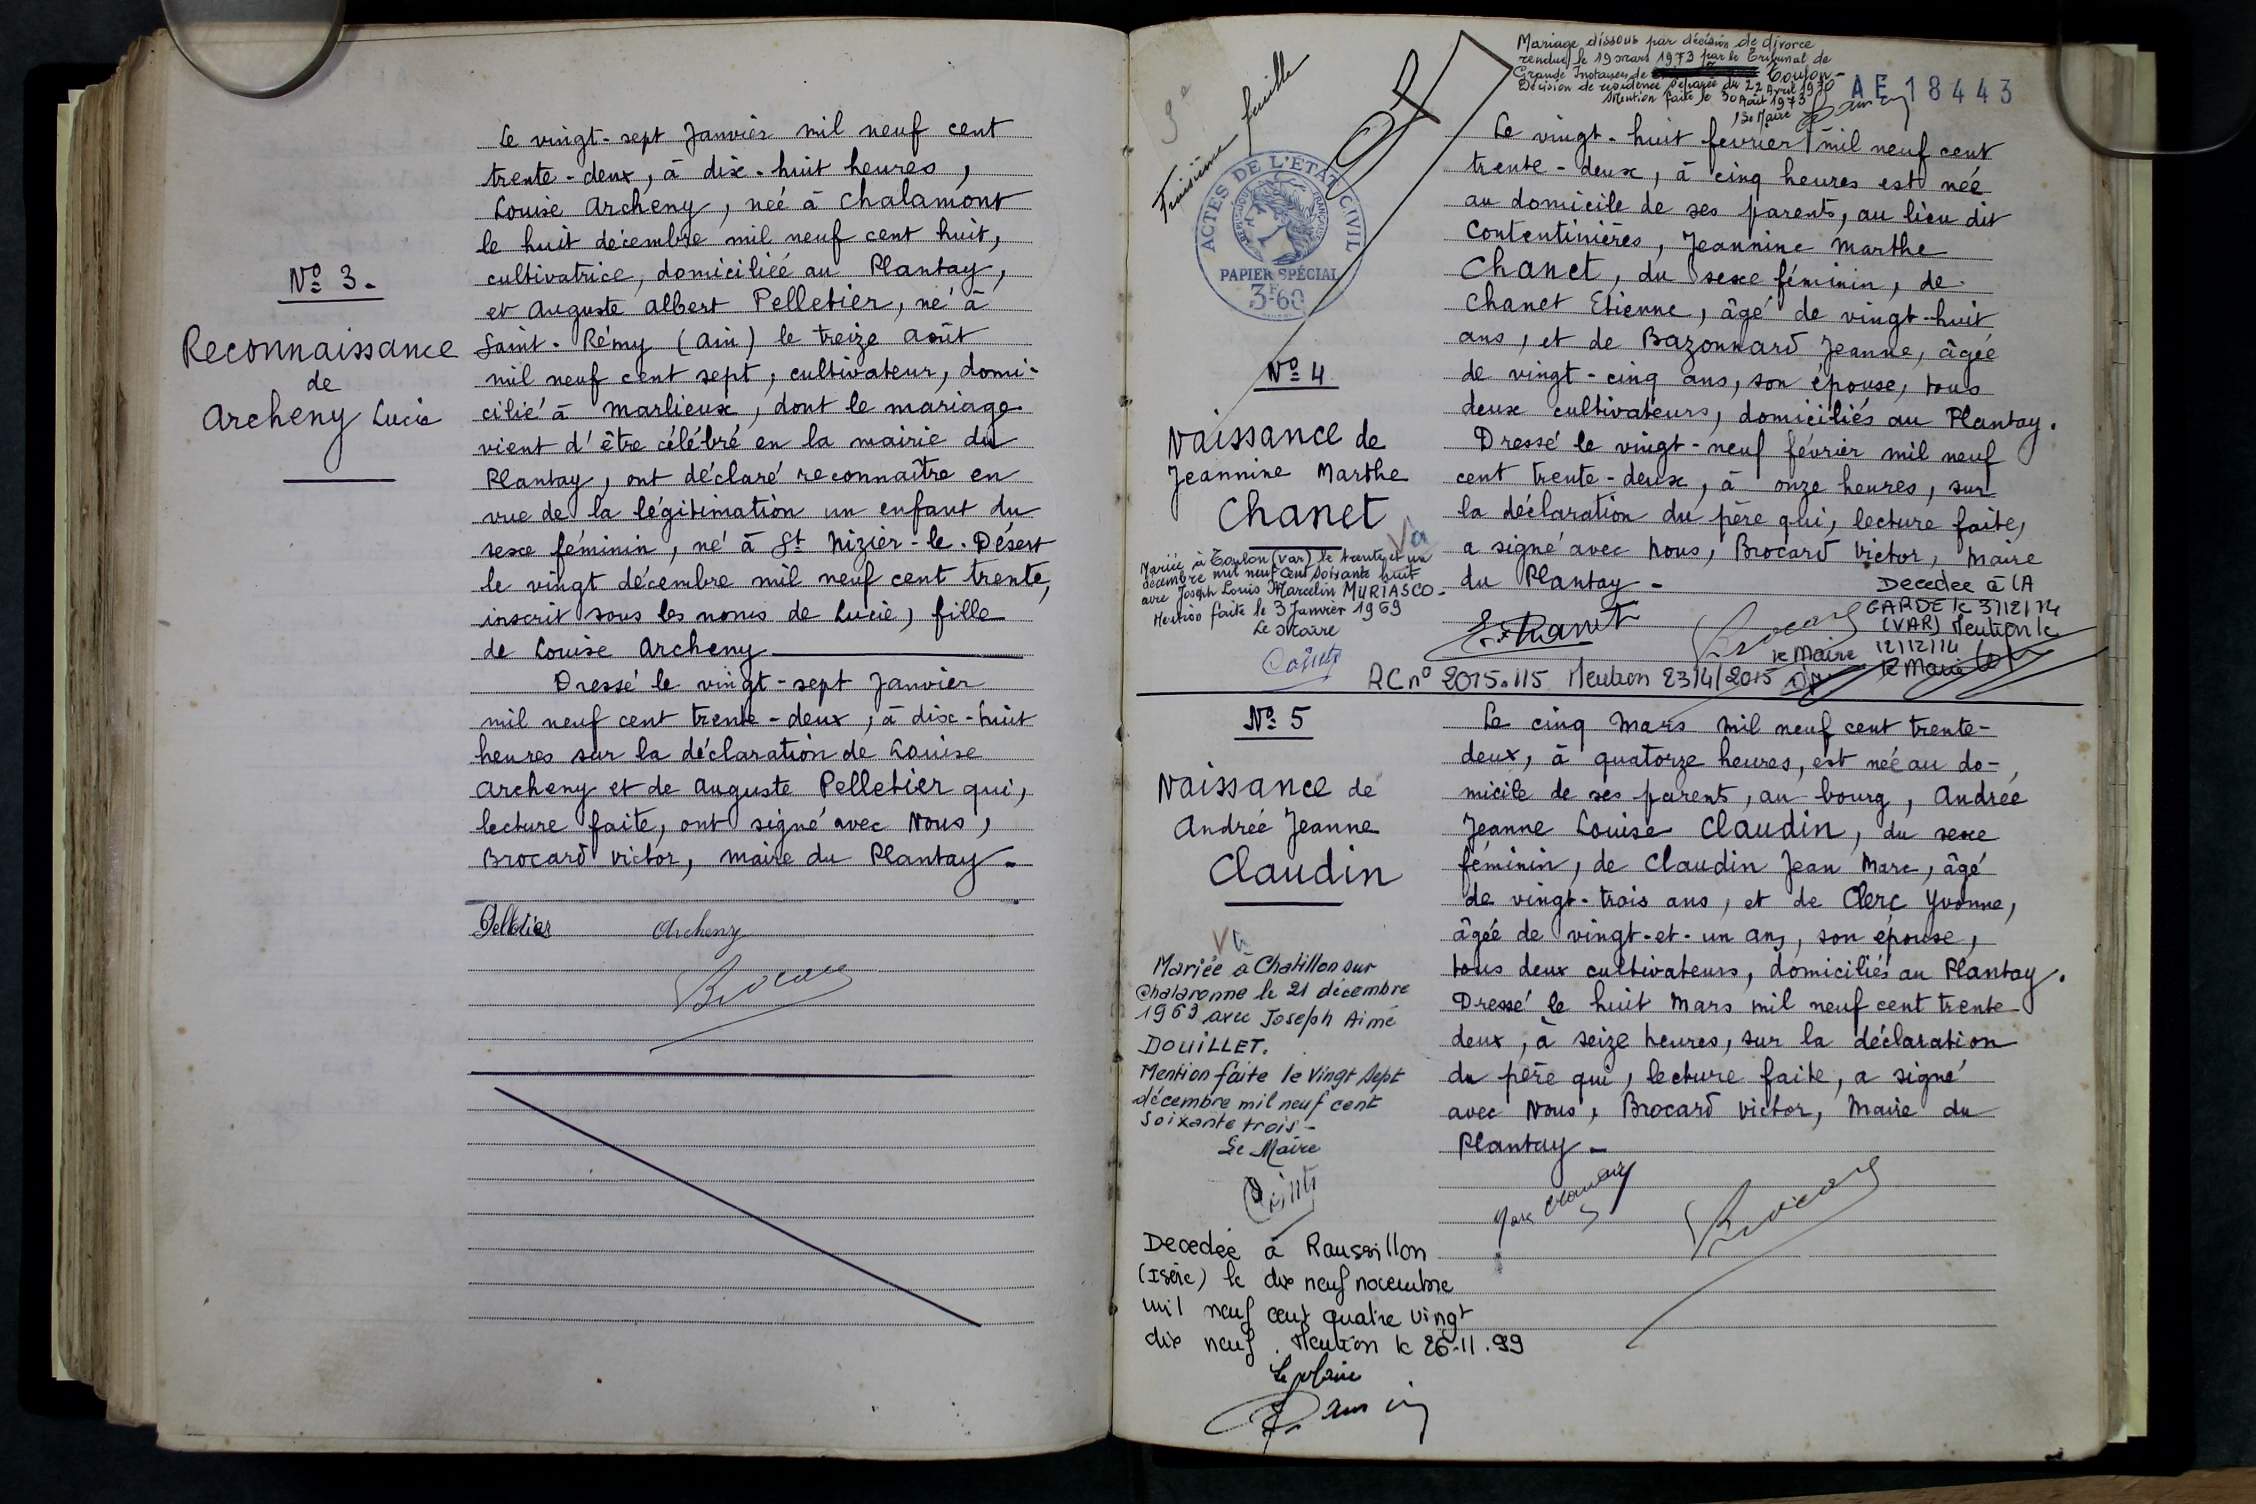 N° 3.
Reconnaissance
de
Archeny Lucie
Le vingt-sept Janvier mil neuf cent
trente-deux, à dix-huit heures,
Louise Archeny, née à Chalamont
le huit décembre mil neuf cent huit,
cultivatrice, domiciliée au Plantay,
et Auguste Albert Pelletier, né à
Saint-Rémy (Ain) le treize Août
mil neuf cent sept, cultivateur, domi-
cilié à Marlieux, dont le mariage
vient d'être célébré en la mairie du
Plantay, ont déclaré reconnaître en
vue de la légitimation un enfant du
sexe féminin, né à St Nizier-le-Désert
le vingt décembre mil neuf cent trente,
inscrit sous les noms de Lucie, fille
de Louise Archeny
Dressé le vingt-sept Janvier
mil neuf cent trente-deux, à dix-huit
heures sur la déclaration de Louise
Archeny et de Auguste Pelletier qui,
lecture faite, ont signé avec Nous,
Brocard Victor, maire du Plantay-
Pelletier Archeny
Brocard
3e
Troisième feuille
ACTES DE L'ÉTAT CIVIL
RÉPUBLIQUE FRANÇAISE
PAPIER SPÉCIAL
3F60
Mariage dissous par décision de divorce
rendue le 19 mars 1973 par le Tribunal de
Grande Instance de Toulon-
Décision de résidence séparée du 22 Avril 1970
Mention faite le 30 Août 1973
Le Maire
AE 18443
N° 4
Naissance de
Jeannine Marthe
Chanet
Va
Mariée à Toulon (Var) le trente et un
décembre mil neuf cent soixante huit
avec Joseph Louis Marcelin MURIASCO-
Mention faite le 3 Janvier 1969
Le Maire
Le vingt-huit fevrier mil neuf cent
trente-deux, à cinq heures est née
au domicile de ses parents, au lieu dit
Contentinières, Jeannine Marthe
Chanet, du sexe féminin, de
Chanet Etienne, âgé de vingt-huit
ans, et de Bazonnard Jeanne, âgée
de vingt-cinq ans, son épouse, tous
deux cultivateurs, domiciliés au Plantay.
Dressé le vingt-neuf février mil neuf
cent trente-deux, à onze heures, sur
la déclaration du père qui, lecture faite,
a signé avec Nous, Brocard Victor, Maire
du Plantay-
E. Chanet Brocard
Decedee à LA
GARDE le 3/12/14
(VAR) Mention le
12/12/14
le Maire
RC n° 2015.115 Mention 23/4/2015 le Maire
N° 5
Naissance de
Andrée Jeanne
Claudin
Va
Mariée à Chatillon sur
Chalaronne le 21 décembre
1963 avec Joseph Aimé
DOUILLET.
Mention faite le Vingt Sept
décembre mil neuf cent
Soixante trois-
Le Maire
Decedée à Roussillon
(Isère) le dix neuf novembre
mil neuf cent quatre vingt
dix neuf. Mention le 26-11.99
Le Maire
Le cinq Mars mil neuf cent trente-
deux, à quatorze heures, est née au do-
micile de ses parents, au bourg, Andrée
Jeanne Louise Claudin, du sexe
féminin, de Claudin Jean Marc, âgé
de vingt-trois ans, et de Clerc Yvonne,
âgée de vingt-et-un ans, son épouse,
tous deux cultivateurs, domiciliés au Plantay.
Dressé le huit Mars mil neuf cent trente
deux, à seize heures, sur la déclaration
du père qui, lecture faite, a signé
avec Nous, Brocard Victor, Maire du
Plantay-
Marc Claudin
Brocard